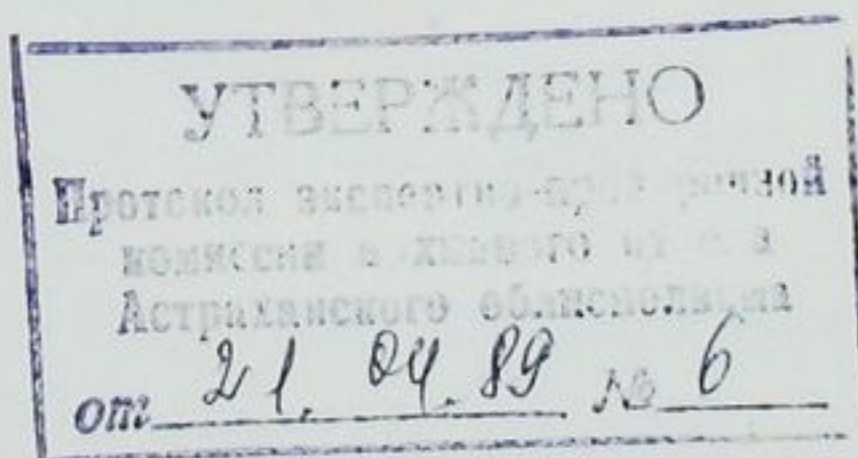 УТВЕРЖДЕНО
Протокол экспертно-проверочной
комиссии архивного отдела
Астраханского облисполкома
от 21.04.89 № 6